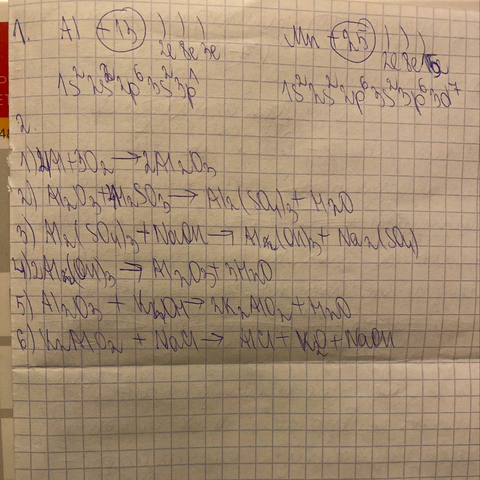 1. Al +13 ) ) ) Mn +25 ) ) )
2e 8e 3e 2e 8e 15e
1s²2s²2p⁶3s²3p¹ 1s²2s²2p⁶3s²3p⁶3d⁷
2.
1) 2Al+3O₂→2Al₂O₃
2) Al₂O₃+H₂SO₃→Al₂(SO₄)₃+H₂O
3) Al₂(SO₄)₃+NaOH→Al₂(OH)₃+Na₂(SO₄)
4) 2Al₂(OH)₃→Al₂O₃+3H₂O
5) Al₂O₃+K₂OH→2K₂AlO₂+H₂O
6) K₂AlO₂+NaCl→AlCl+K₂O+NaOH